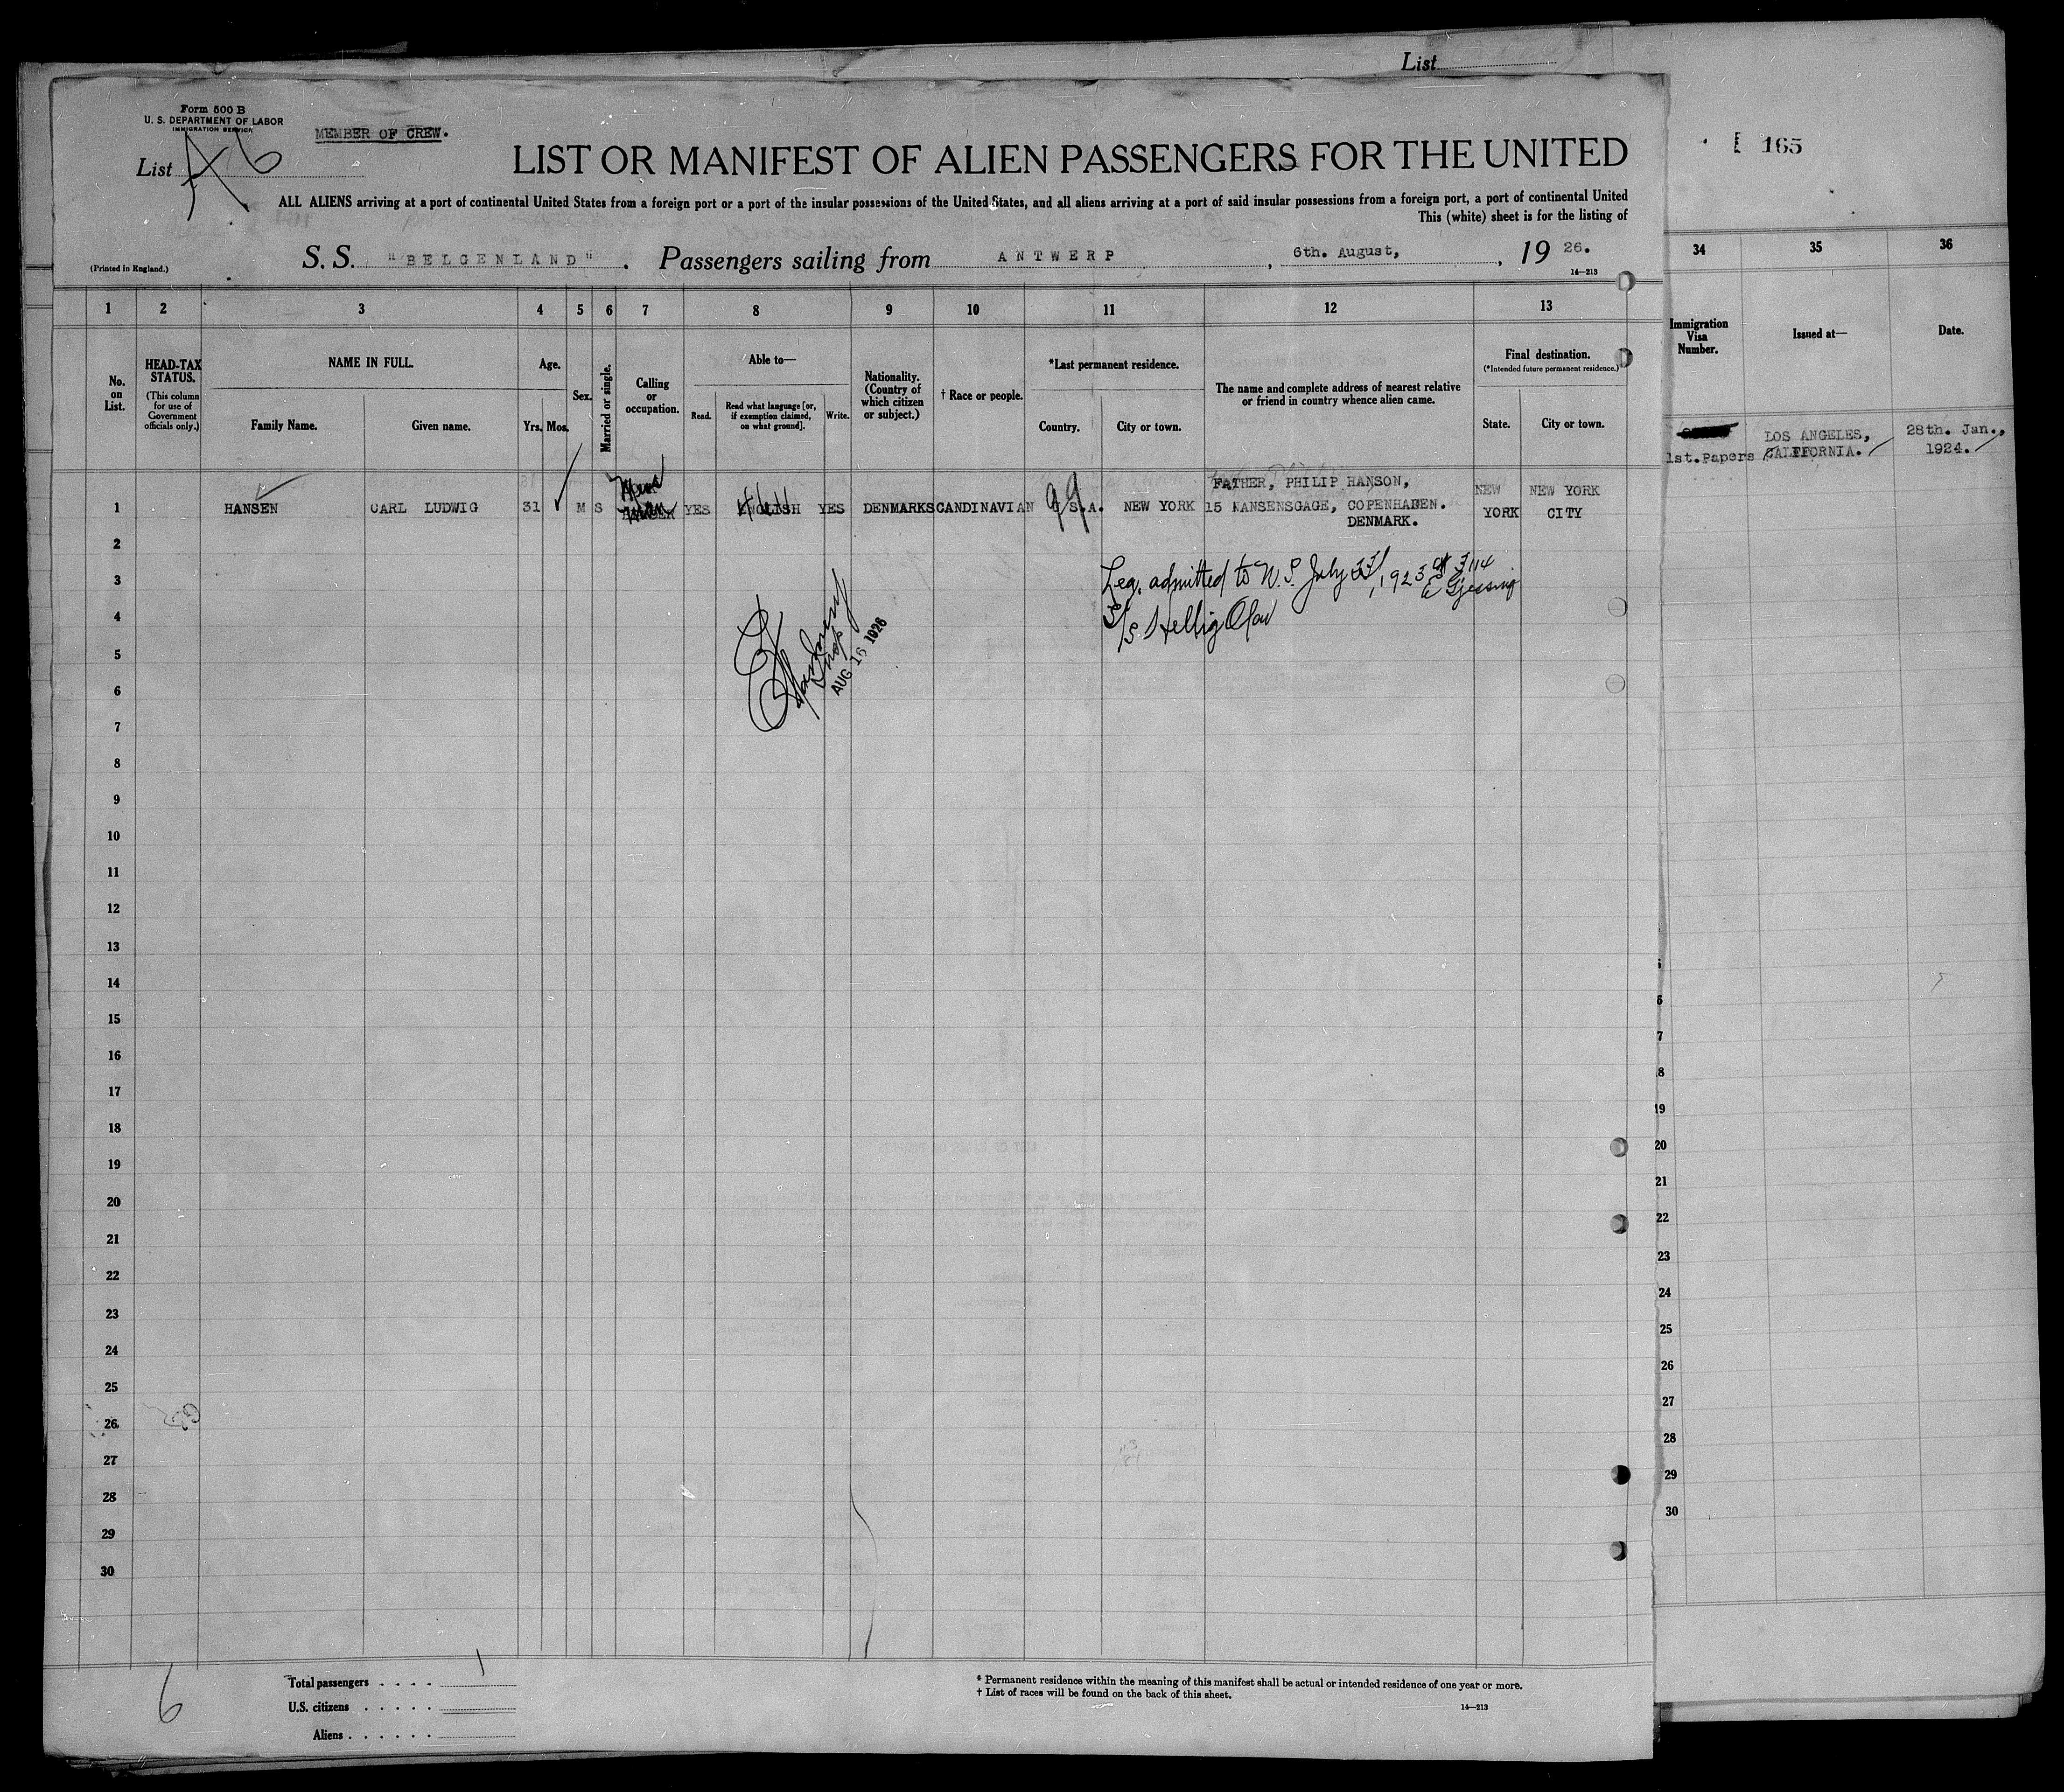 List
Form 500 B
U. S. DEPARTMENT OF LABOR
IMMIGRATION SERVICE
MEMBER OF CREW.
List A 6
LIST OR MANIFEST OF ALIEN PASSENGERS FOR THE UNITED
165
ALL ALIENS arriving at a port of continental United States from a foreign port or a port of the insular possessions of the United States, and all aliens arriving at a port of said insular possessions from a foreign port, a port of continental United
This (white) sheet is for the listing of
(Printed in England.)
S. S. "BELGENLAND". Passengers sailing from ANTWERP, 6th. August, , 19 26.
14—213
1 2 3 4 5 6 7 8 9 10 11 12 13
34 35 36
No. on List.
HEAD-TAX STATUS.
(This column for use of Government officials only.)
NAME IN FULL.
Family Name. Given name.
Age.
Yrs. Mos.
Sex.
Married or single.
Calling or occupation.
Able to—
Read. Read what language [or, if exemption claimed, on what ground]. Write.
Nationality. (Country of which citizen or subject.)
† Race or people.
*Last permanent residence.
Country. City or town.
The name and complete address of nearest relative or friend in country whence alien came.
Final destination.
(*Intended future permanent residence.)
State. City or town.
Immigration Visa Number.
Issued at—
Date.
1st.Papers LOS ANGELES, CALIFORNIA. 28th. Jan., 1924.
1 HANSEN CARL LUDWIG 31 M S YES ENGLISH YES DENMARK SCANDINAVIAN U.S.A. NEW YORK
FATHER, PHILIP HANSON,
15 NANSENSGAGE, COPENHAGEN.
DENMARK.
NEW YORK NEW YORK CITY
Leg. admitted to U.S. July 1923
S/S Hellig Olav
AUG 16 1926
2
3
4
5
6
7
8
9
10
11
12
13
14
15
16
17
18
19
20
21
22
23
24
25
26
27
28
29
30
6
7
8
19
20
21
22
23
24
25
26
27
28
29
30
6
Total passengers . . . . 1
U.S. citizens . . . . .
Aliens . . . . . .
* Permanent residence within the meaning of this manifest shall be actual or intended residence of one year or more.
† List of races will be found on the back of this sheet.
14—213